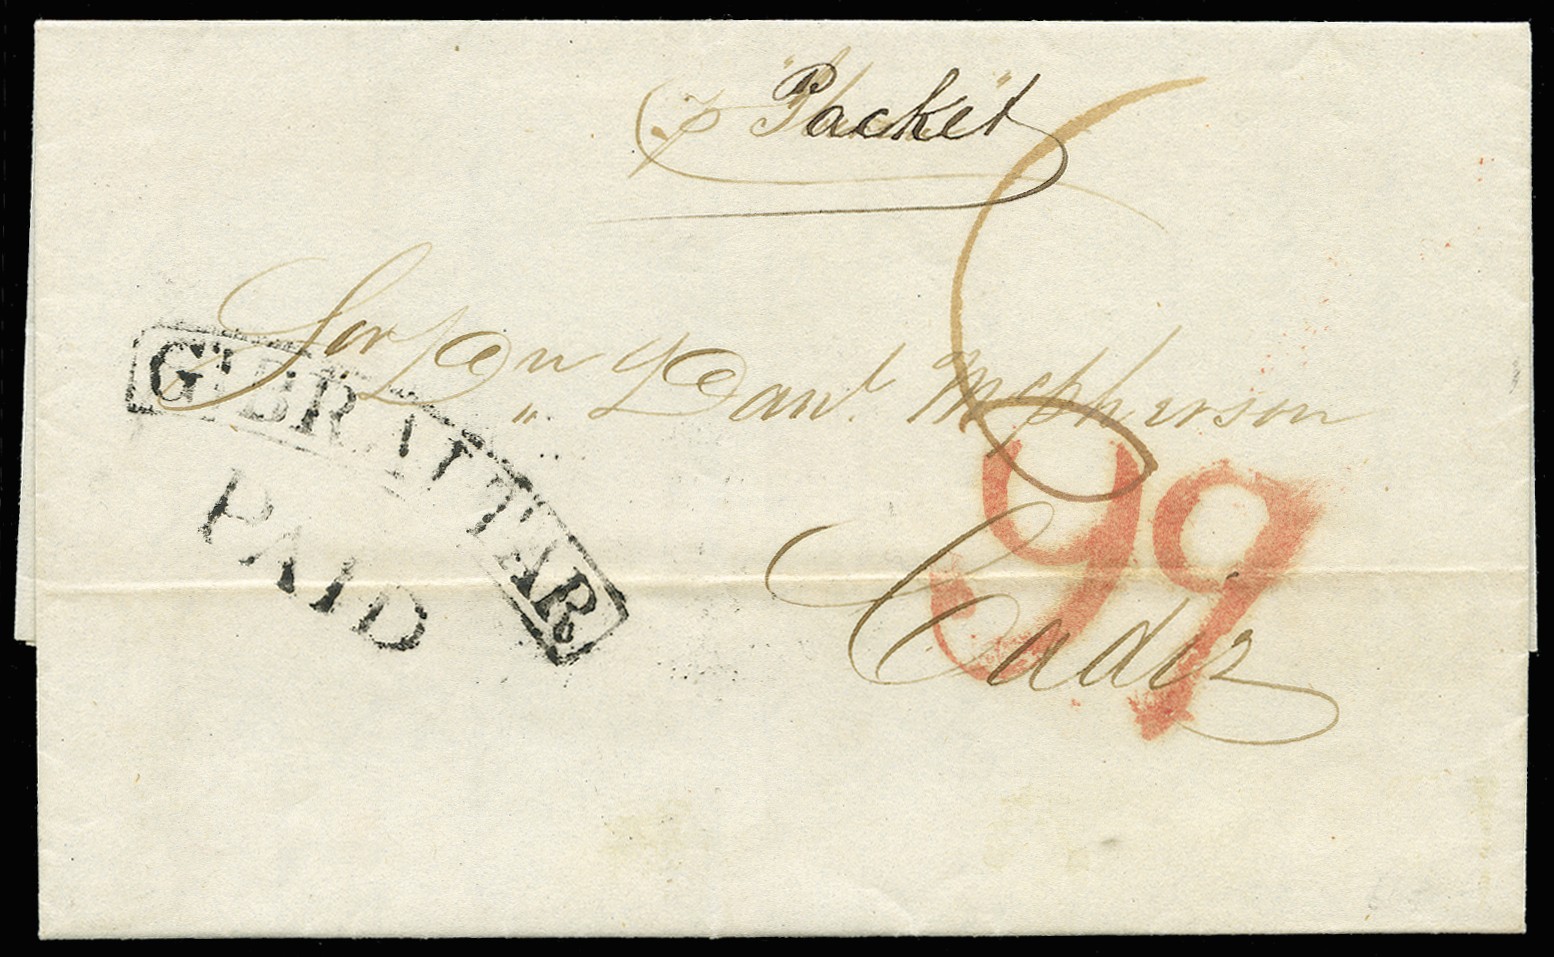 p "Packet"
Sor Dn Danl. McPherson
GIBRALTAR
PAID
99
Cadiz